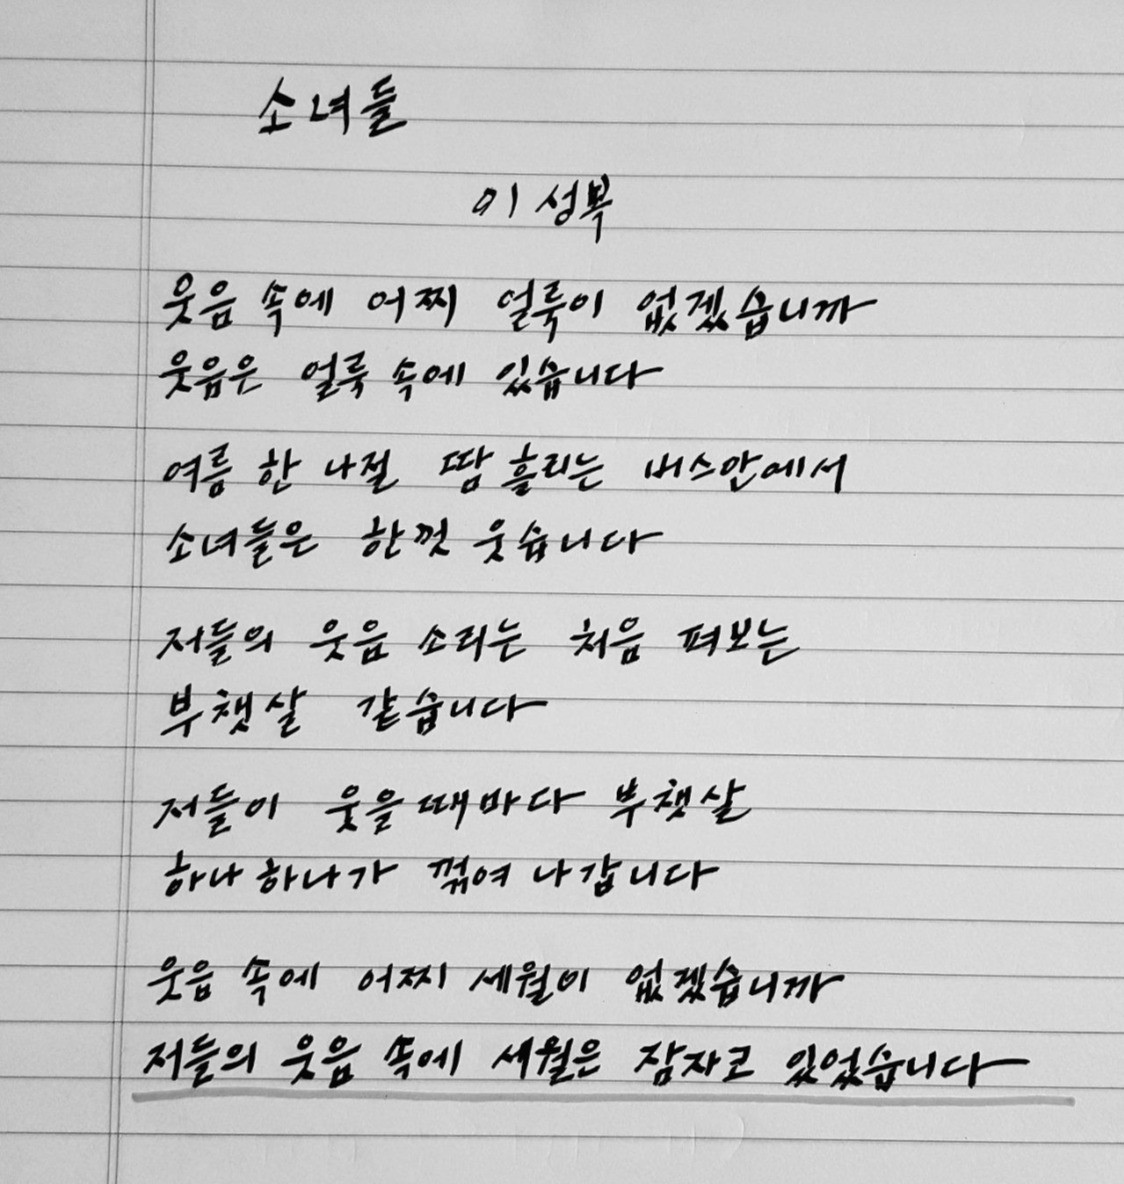 소녀들
이성복
웃음 속에 어찌 얼룩이 없겠습니까
웃음은 얼룩 속에 있습니다
여름 한 나절 땀 흘리는 버스안에서
소녀들은 한껏 웃습니다
저들의 웃음 소리는 처음 펴보는
부챗살 같습니다
저들이 웃을때마다 부챗살
하나 하나가 꺾여 나갑니다
웃음 속에 어찌 세월이 없겠습니까
저들의 웃음 속에 세월은 잠자코 있었습니다